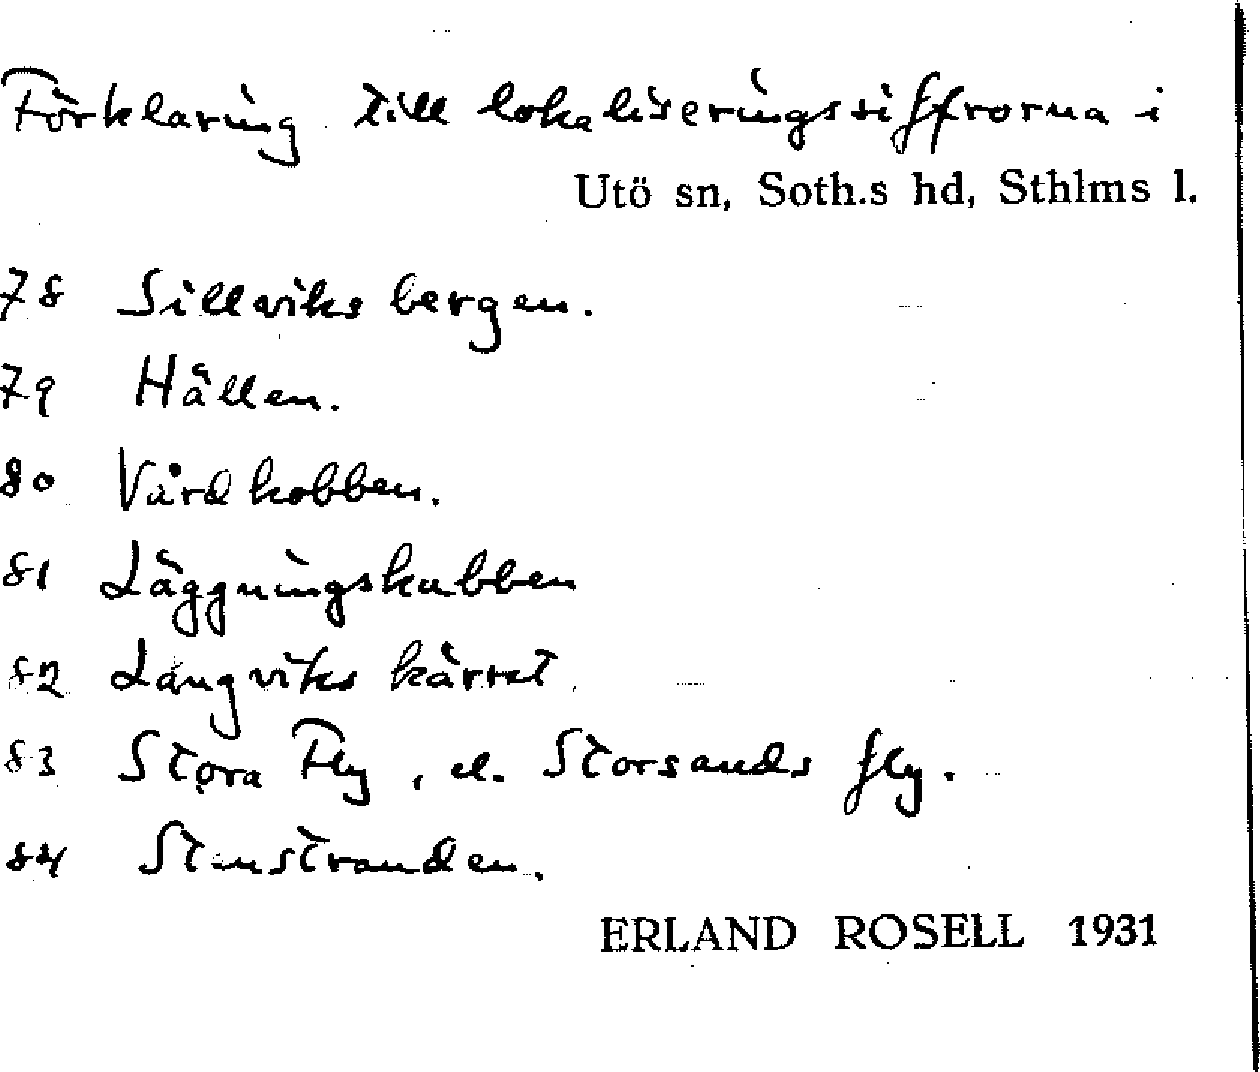 Förklaring till lokaliseringssiffrorna i
Utö sn, Soth.s hd, Sthlms l.
78 Sillviksbergen.
79 Hällen.
80 Vårdkobben.
81 Läggningskubben
82 Långvikskärret
83 Stora Fly, el. Storsands fly.
84 Stenstranden.
ERLAND ROSELL 1931